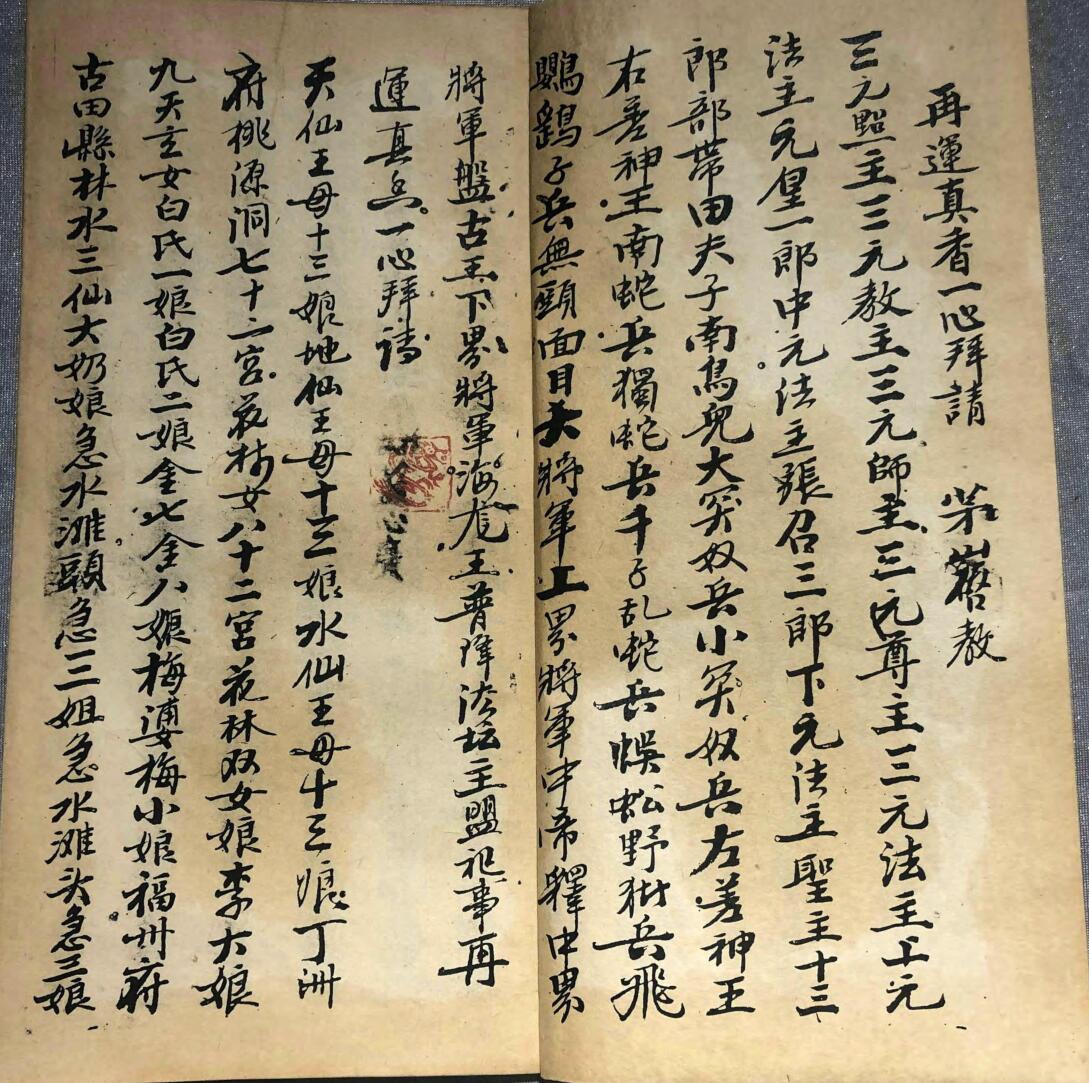 再運真香一心拜請 茅山啓教
三元照主三元教主三元師主三元尊主三元法主上元
法主元皇一郎中元法主張召三郎下元法主聖主十三
郎部帶田夫子南鳥兒大突奴兵小突奴兵左差神王
右差神王南蛇兵獨蛇兵千子乱蛇兵蜈蚣野狲兵飛
鸚鵡子兵無頭面目大將軍上界將軍中帝釋中界
將軍盤古王下界將軍海龍王普降法坛主盟祀事再
運真香一心拜請
天仙王母十三娘地仙王母十三娘水仙王母十三娘丁洲
府桃源洞七十二宮花林女八十二宮花林双女娘李大娘
九天玄女白氏一娘白氏二娘金七金八娘梅婆梅小娘福州府
古田縣林水三仙大奶娘急水滩頭急三姐急水滩头急三娘